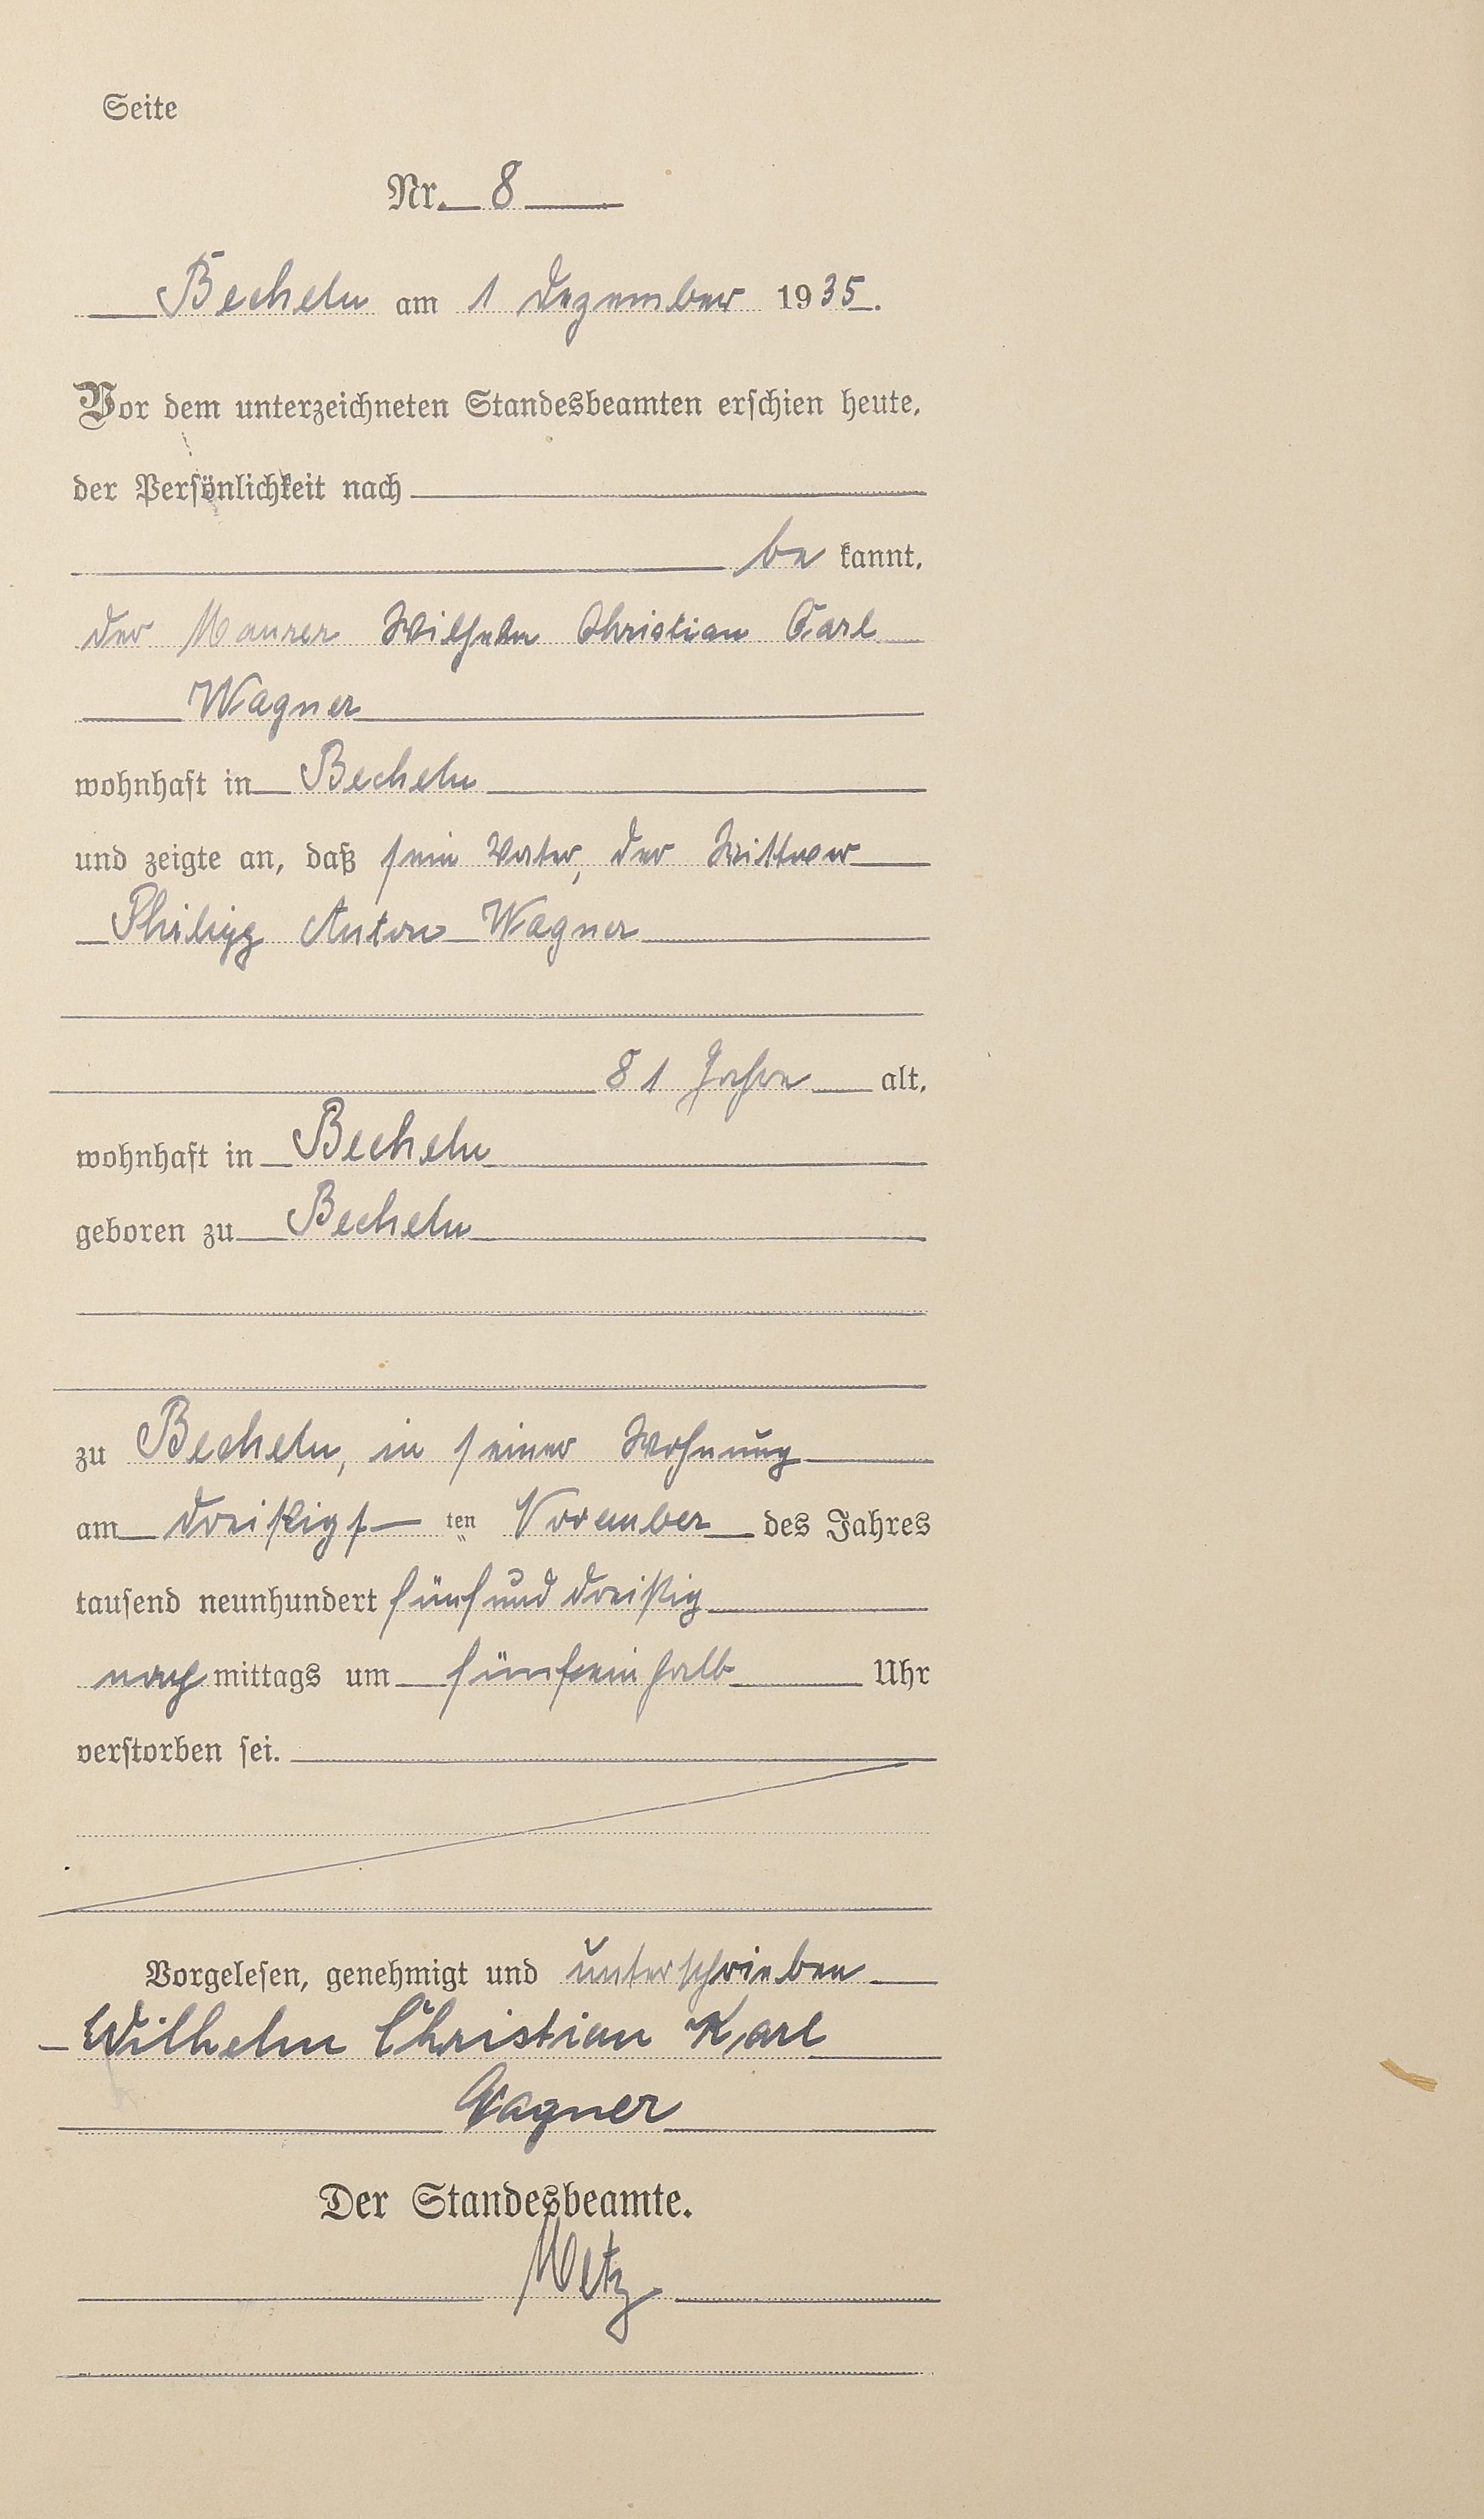 Seite
Nr. 8
Becheln am 1 Dezember 1935.
Vor dem unterzeichneten Standesbeamten erschien heute,
der Persönlichkeit nach
be kannt,
der Maurer Wilhelm Christian Carl
Wagner
wohnhaft in Becheln
und zeigte an, daß sein Vater, der Wittwer
Philipp Anton Wagner
81 Jahre alt,
wohnhaft in Becheln
geboren zu Becheln
zu Becheln, in seiner Wohnung
am dreißigs ten November des Jahres
tausend neunhundert fünf und dreißig
nach mittags um fünfeinhalb Uhr
verstorben sei.
Vorgelesen, genehmigt und unterschrieben
Wilhelm Christian Karl
Wagner
Der Standesbeamte.
Metz